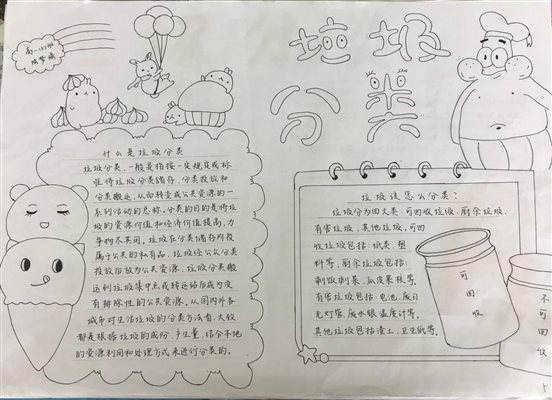 垃圾
分类
高一(1)班
什么是垃圾分类
垃圾分类,一般是指按一定规定或标
准将垃圾分类储存、分类投放和
分类搬运,从而转变成公共资源的一
系列活动的总称。分类的目的是将垃
圾的资源价值和经济价值提高,力
争物尽其用。垃圾在分类储存阶段
属于公众的私有品,垃圾经公众分类
投放后成为公共资源,垃圾分类搬
运到垃圾集中点或转运站后成为没
有排除性的公共资源。从国内外各
城市对生活垃圾的分类方法看,大致
都是根据垃圾的成份、产生量,结合本地
的资源利用和处理方式来进行分类的。
垃圾该怎么分类?
垃圾分为四大类:可回收垃圾、厨余垃圾、
有害垃圾、其他垃圾,可回
收垃圾包括:纸类、塑
料等,厨余垃圾包括:
剩饭剩菜、瓜皮果核等。
有害垃圾包括:电池、废日
光灯管、废水银温度计等。
其他垃圾包括渣土、卫生纸等。
可
回
收
可
回
收